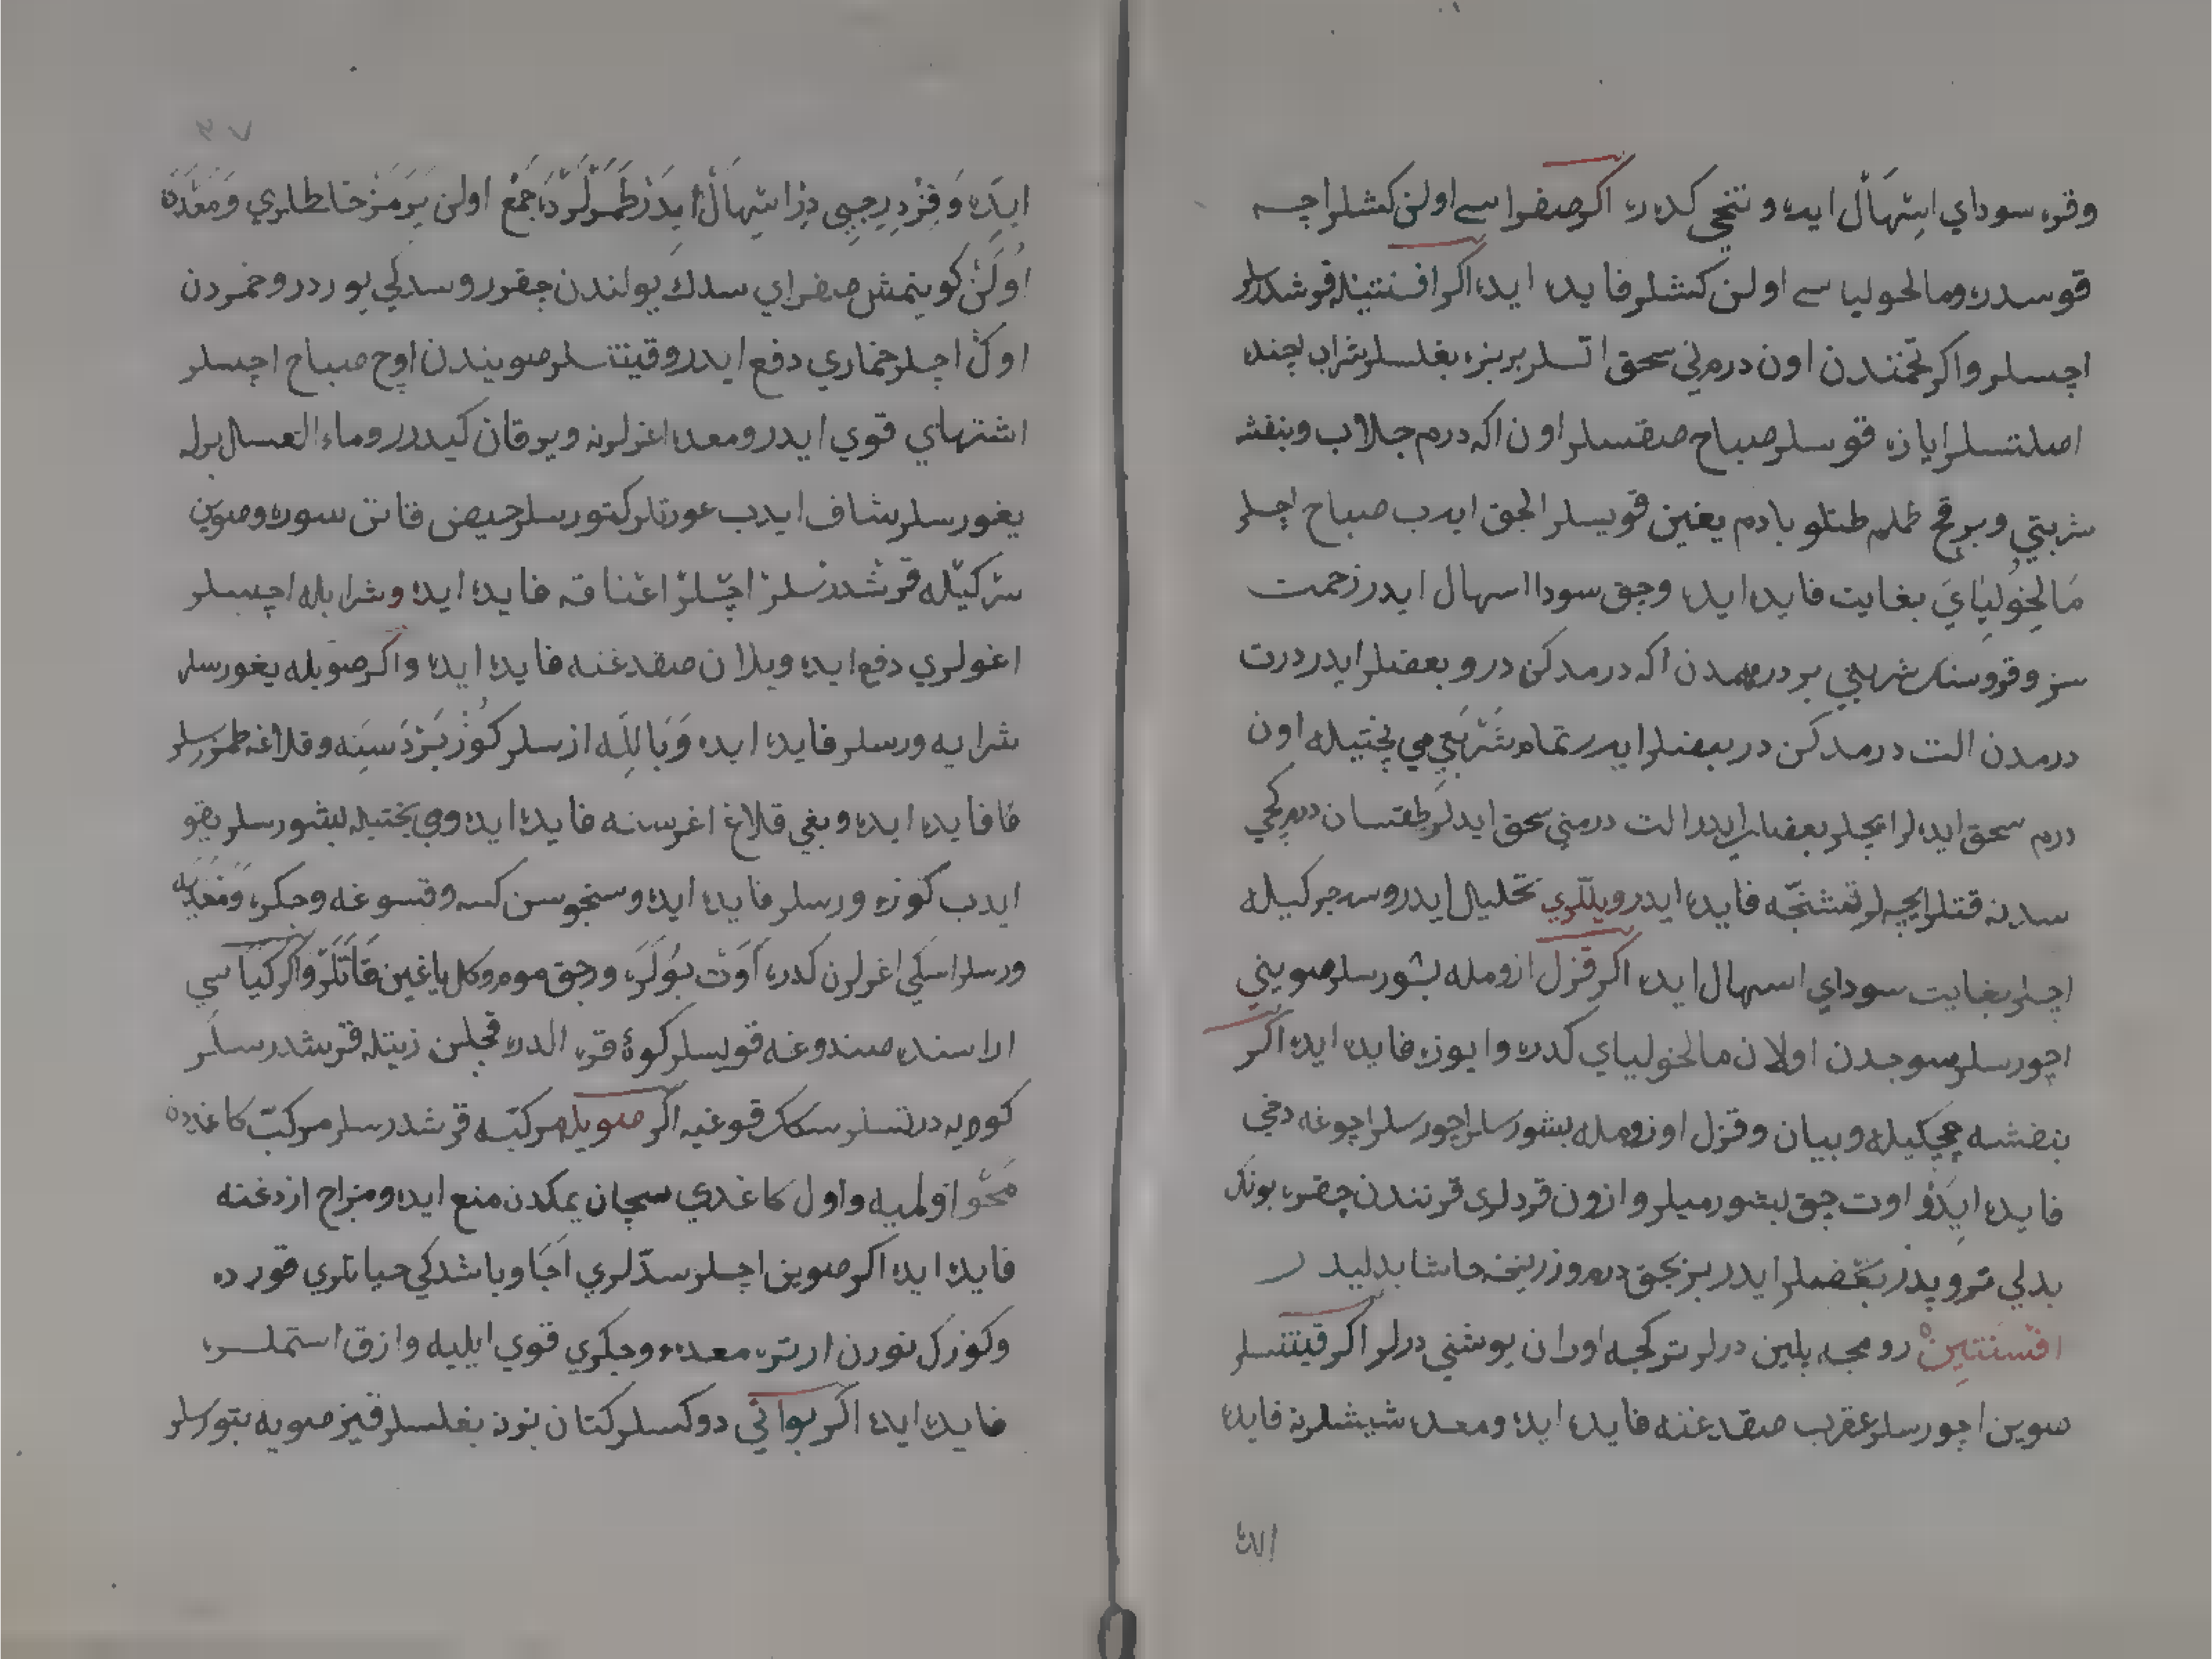 وقره سوداي اسْهَالْ ايده و تنحي كدره اكر صفرا سے اولن كشلر اچـه
قوسدره ومالحوليا سے اولن كشلر فايده ايده اكر افسنتينله قرشدرلر
اچسلر واكر تخمندن اون درمني سحق اتسلر بر بزه بغلسلر شراب اچنده
اصلتسلر اياره قوسلر صباح صقسلر اون اكه درم جلاب وبنفشه
شربتي وبرقچ طمله طتلو بادم يغين قويسلر الجق ايدب صباح اچسلر
مَالِخُولِيَايَ بغايت فايده ايده وچق سودا اسهال ايدر زحمت
سز وقروسنك شربتي بر درهمدن اكه درمدكن در و بعضلر ايدر درت
درمدن الت درمدكن در بعضلر ايدر تمام شربتي مي پختيله اون
درم سحق ايدلر ايچلر بعضلر ايدر الت درمني سحق ايدلر طقسان درم كچي
سدنه قتلر ايچلر تشنجه فايده ايدر ويللري تحليل ايدر و سرجركيله
اچسلر بغايت سوداي اسهال ايده اكر قزل ازومله بشورسلر صويني
اچورسلر سوجدن اولان مالخولياي كدره وا يوزه فايده ايده اكر
بنفشه چچكيله وبيان وقزل اوزومله بشورسلر اچورسلر اچوغه دخي
فايده ايدَرْ و اوت چق بشورميلر وازون قردلري قرنندن چقره بونك
بدلي تروپدر بعضلر ايدر بزبجق درم وزرنيخه حاشا بدليدر
افسنتين رومجه پلين درلر تركجه اوران بوشني درلر اكر قينتسلر
صوين اچورسلر عقرب صقدغنه فايده ايده ومعده شيشلرنه فايده
الده
٤٧
ايده وَقِزْدِرِجِيِي دِرْ اسْهَالْ ايدَرْ طَمَرْلَرْدَه جَمْع اولن يَرَمَزْ خلطلري وَمَعْدَهْ
اُولَنْ كوينمش صفراي سدك يولندن چقرر و سدكي يوردر وخمردن
اوكْ اچلر خماري دفع ايدر وقينتسلر صويندن اوچ صباح اچسلر
اشتهاي قوي ايدر ومعده اغزلرنه ويرقان كيدرر وماء العسل برله
يغورسلر شاف ايدب عورتلر كتورسلر حيض قانن سوره وصوين
سركيله قرشدرسلر اچسلر اغناقه فايده ايده وشرابله اچسلر
اغولري دفع ايده ويلان صقدغنه فايده ايده واكر صويله يغورسلر
شرابه ورسلر فايده ايده وَبَالِلَه ازسلر كُوزْ بَرْدَسِنَه وقلاغه طمزرسلر
قافايده ايده وبغي قلاغ اغرسنه فايده ايده ومي پختيله بشورسلر يقو
ايدب كوزه ورسلر فايده ايده وسنجوسن كسه وقسوغه وجكره وَمَعْدَيَه
ورسلر اسكي اغرلرن كدره اَوَتْ بُولَرَه ورجق موم وكل ياغين قَاتَلَرْ واكر كيَاسي
اراسنده صندوغه قويسلر كوهٔ قره الدره قجلن زيتله قرشدرسلر
كوديه درتسلر سكك قوغيه اكر صويله مركبه قرشدرسلر مركبت كاغددن
مَحْو اولميه واول كاغدي سچان يمكدن منع ايده ومزاح ازدغنه
فايده ايده اكر صوين اچسلر سدّلري اَجَا وباشدكي حياتلري قورده
وكوزكل نورن ارتره معده وجكري قوي ايليه وازق استملره
فايده ايده اكر بواتي دوكسلر كتان بزن بغلسلر قيز صويه بتورسلر